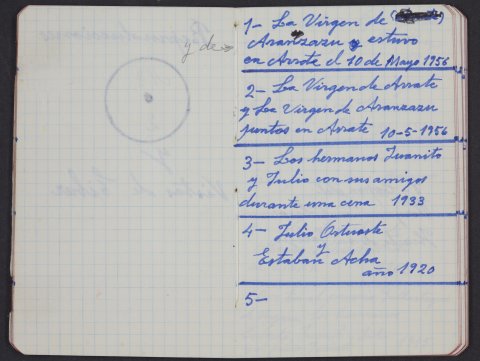 y de →
1- La Virgen de (
Aranzazu y estuvo
en Arrate el 10 de Mayo 1956
2- La Virgen de Arrate
y La Virgen de Aranzazu
juntas en Arrate 10-5-1956
3- Los hermanos Juanito
y Julio con sus amigos
durante una cena 1933
4- Julio
y
Estaban Acha
año 1920
5-